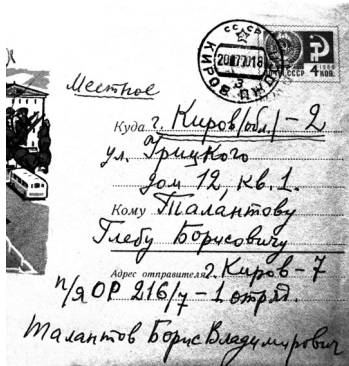 СССР
20117018
КИРОВ
3
СССР 4
Местное
Куда г. Киров/обл./-2
ул. Грицкого
дом 12, кв. 1.
Кому Талантову
Глебу Борисовичу
Адрес отправителя г. Киров-7
п/я ОР 216/7-1 отряд.
Талантов Борис Владимирович